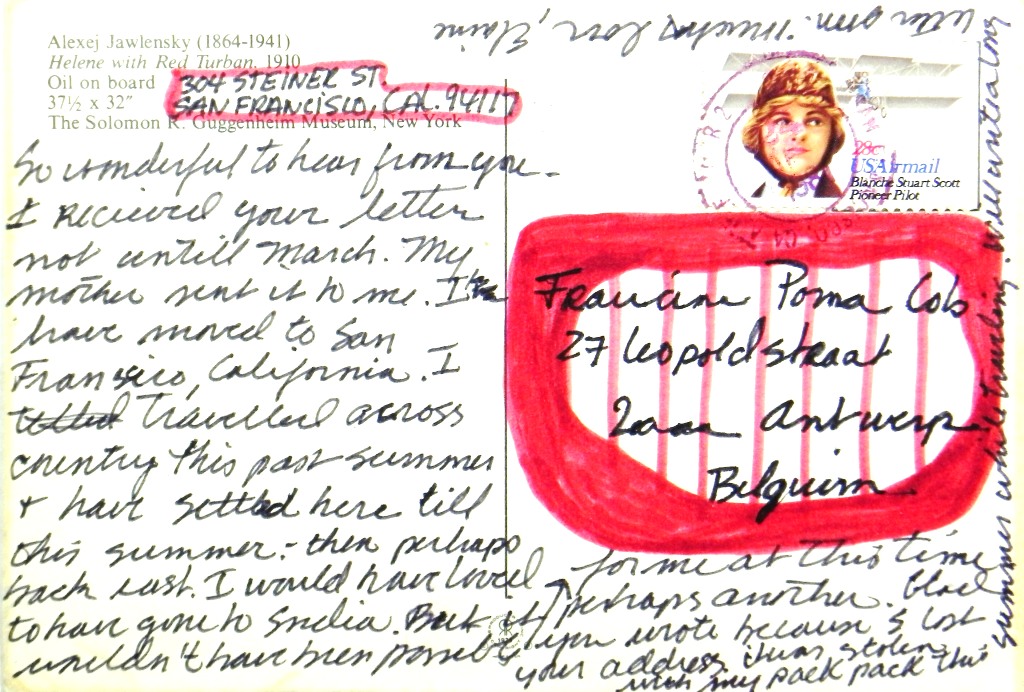 Alexej Jawlensky (1864-1941)
Helene with Red Turban, 1910
Oil on board
37½ x 32"
The Solomon R. Guggenheim Museum, New York
304 STEINER ST.
SAN FRANCISCO, CAL. 94117
So wonderful to hear from you.
I recieved your letter
not untill March. My
mother sent it to me. I
have moved to San
Fransico, California. I
travelled across
country this past summer
+ have settled here till
this summer - then perhaps
back east. I would have loved
to have gone to India. But it
wouldn't have been possible
for me at this time
perhaps another. Glad
you wrote because I lost
your address it was stolen
with my pack pack this
summer while traveling. Will write a long
letter soon. Much Love, Elaine
28c
USAirmail
Blanche Stuart Scott
Pioneer Pilot
Francine Poma Cols
27 Leopoldstraat
2000 Antwerp
Belguim